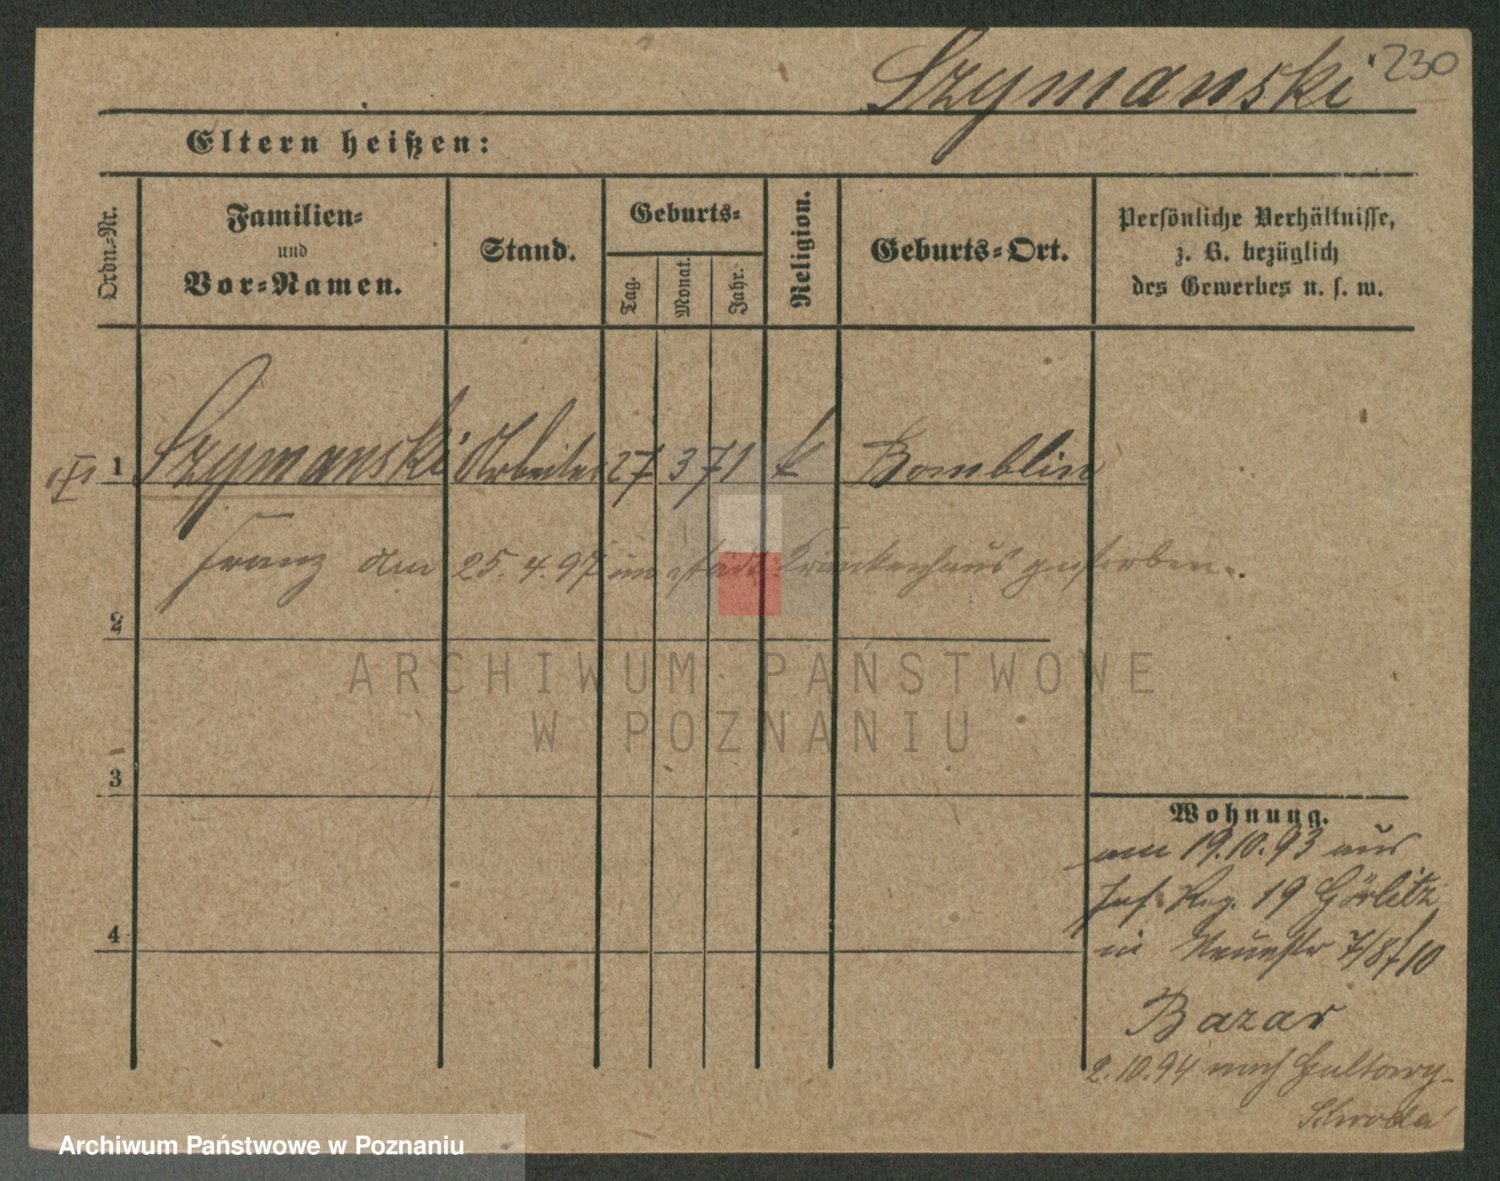 Szymanski 230
Eltern heißen:
Ordn.-Nr.
Familien-
und
Vor-Namen.
Stand.
Geburts-
Tag.
Monat.
Jahr.
Religion.
Geburts-Ort.
Persönliche Verhältnisse,
z. B. bezüglich
des Gewerbes u. s. w.
1 Szymanski Arbeiter 27 3 71 k Bomblin
Franz am 25.4.97 im städt. Krankenhaus gestorben.
2
ARCHIWUM PAŃSTWOWE
W POZNANIU
3
Wohnung.
am 19.10.93 aus
Inf. Reg. 19 Görlitz
in Neuestr 7/8 / 10
4
Bazar
2.10.94 nach Gultowy-
Schroda
Archiwum Państwowe w Poznaniu